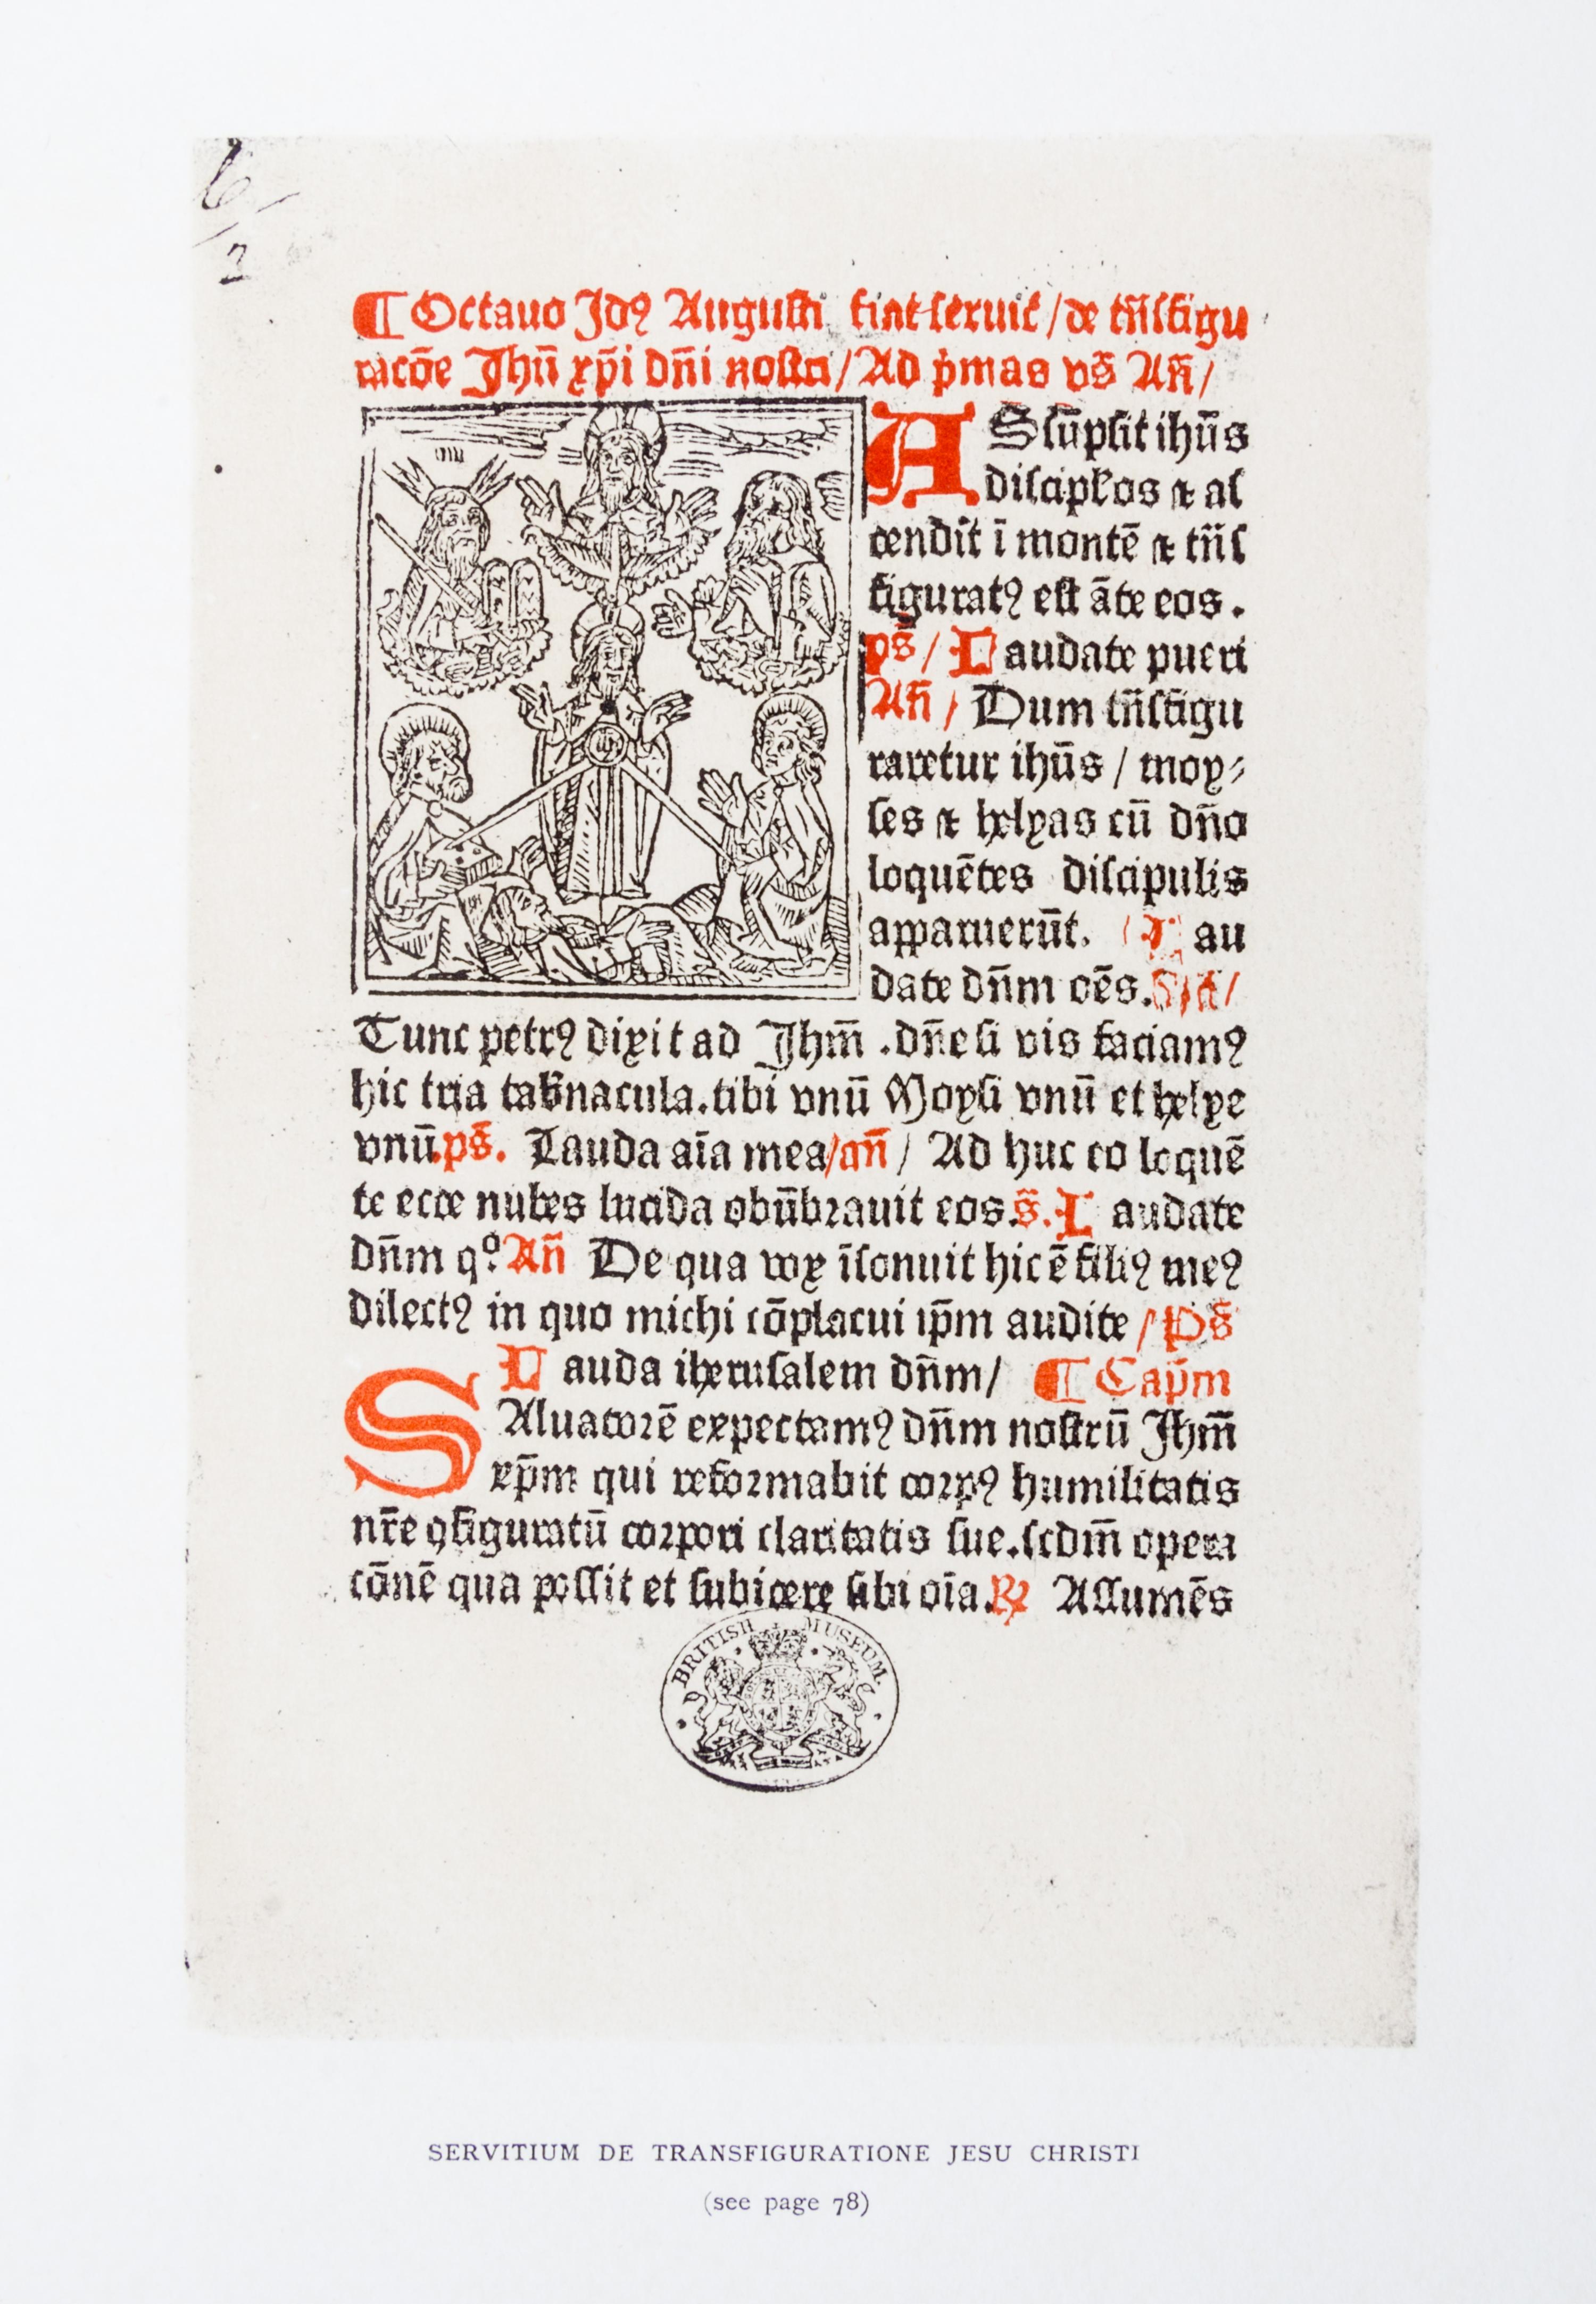 ¶ Octauo Jdꝰ Augusti fiat seruic̄ / de tn̄sfigu
racōe Jhū xp̄i dn̄i nostri / Ad p̄mas vs̄ An̄ /
ASsūpsit ihūs
discipƚos ⁊ as
cendit ī montē ⁊ tn̄s
figuratꝰ est āte eos .
ps̄ / Laudate pueri
An̄ / Dum tn̄sfigu
raretur ihūs / moy⸗
ses ⁊ helyas cū dn̄o
loquētes discipulis
apparuerūt. / Lau
date dn̄m oēs.
Tunc petrꝰ dixit ad Jhm̄ .dn̄e si vis faciamꝰ
hic tria tab̄nacula.tibi vnū Moysi vnū et helye
vnū ps̄. Lauda aīa mea/an̄ / Ad huc eo loquē
te ecce nubes lucida obūbrauit eos.s̄. Laudate
dn̄m qº. An̄ De qua vox īsonuit hic ē filiꝰ meꝰ
dilectꝰ in quo michi cōplacui ip̄m audite / Ps̄
Lauda iherusalem dn̄m / ¶ Cap̄m
SAluatorē expectamꝰ dn̄m nostrū Jhm̄
xp̄m qui reformabit corpꝰ humilitatis
nr̄e ꝯfiguratū corpori claritatis sue.scdm̄ opera
cōnē qua possit et subicere sibi oīa. ℞ Assumēs
BRITISH MUSEUM.
SERVITIUM DE TRANSFIGURATIONE JESU CHRISTI
(see page 78)